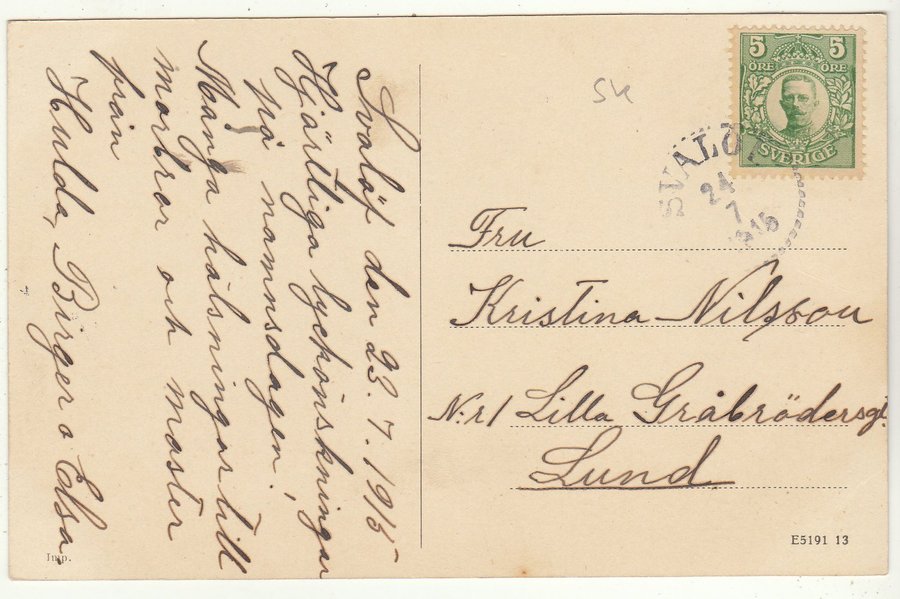 Svalöf den 23.7.1915
Hjärtliga lyckönskningar
på namnsdagen!
Många hälsningar till
morbror och moster
från
Hulda, Birger o Elsa
Imp.
Sk
5 5
ÖRE ÖRE
SVERIGE
SVALÖF
24
7
Fru
Kristina Nilsson
N:r 1 Lilla Gråbrödersg.
Lund
E5191 13